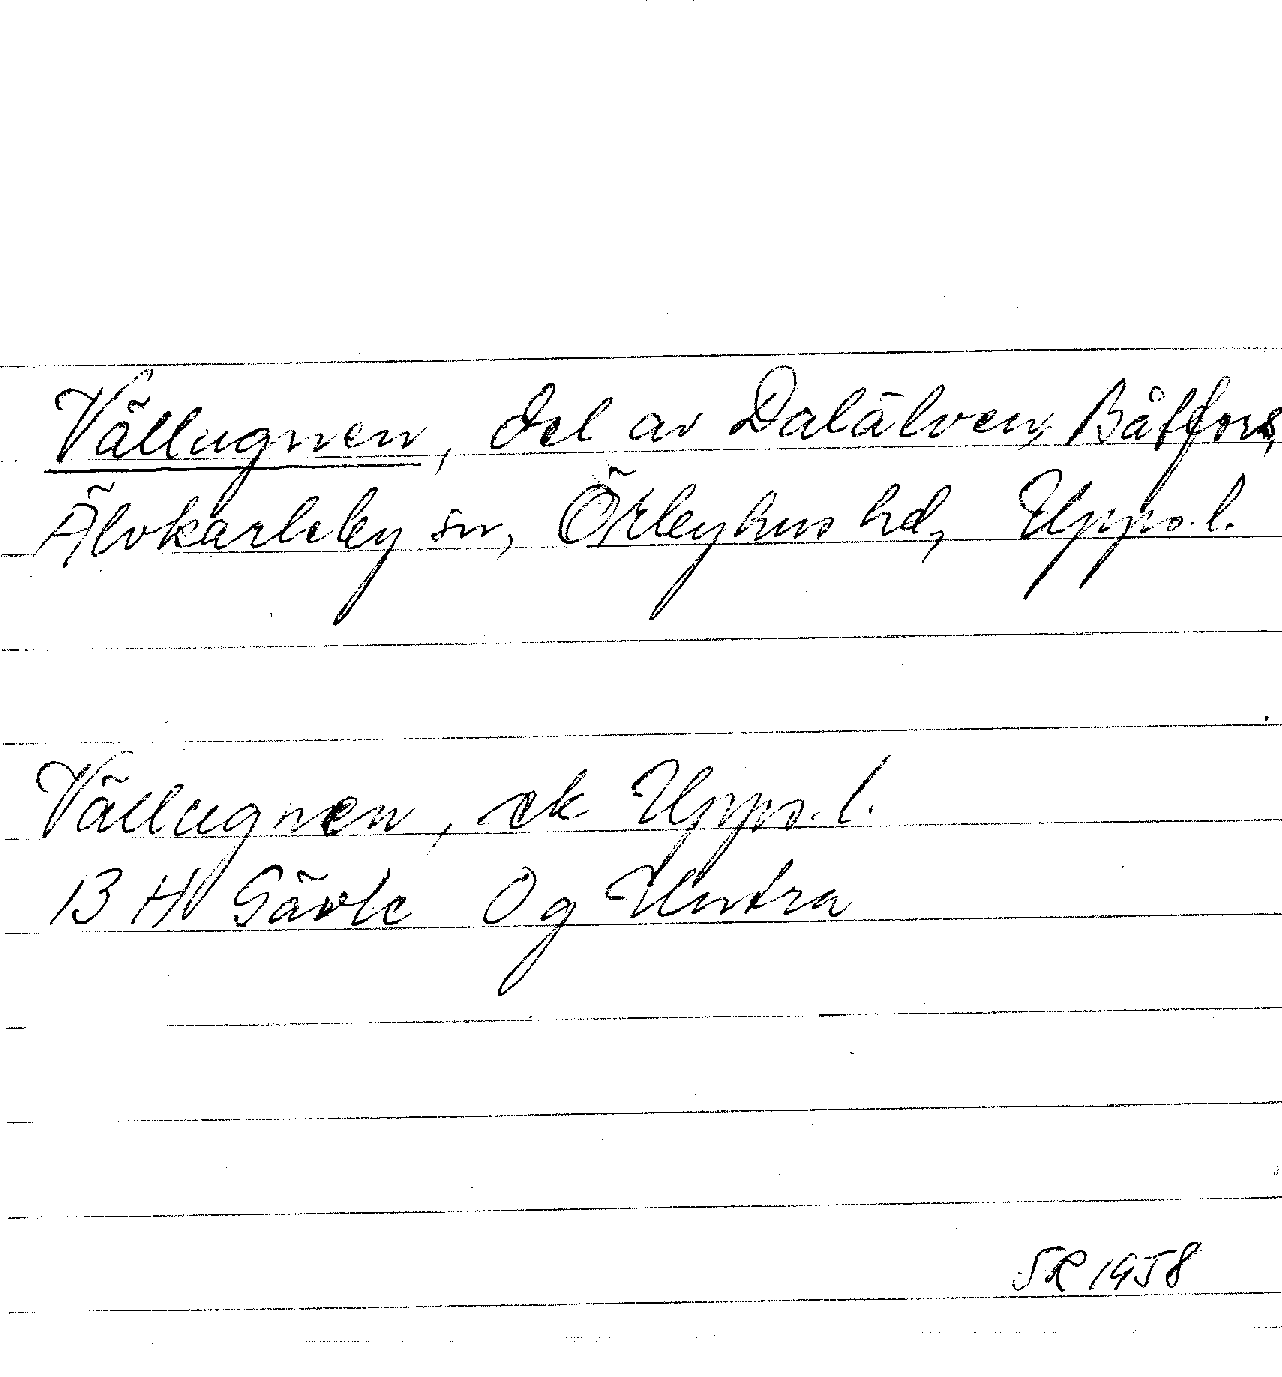 Vällugnen, del av Dalälven, Båtfors,
Älvkarleby sn, Örbyhus hd, Upps. l.
Vällugnen, ek Upps. l.
13 H Gävle Og Untra
SR 1958